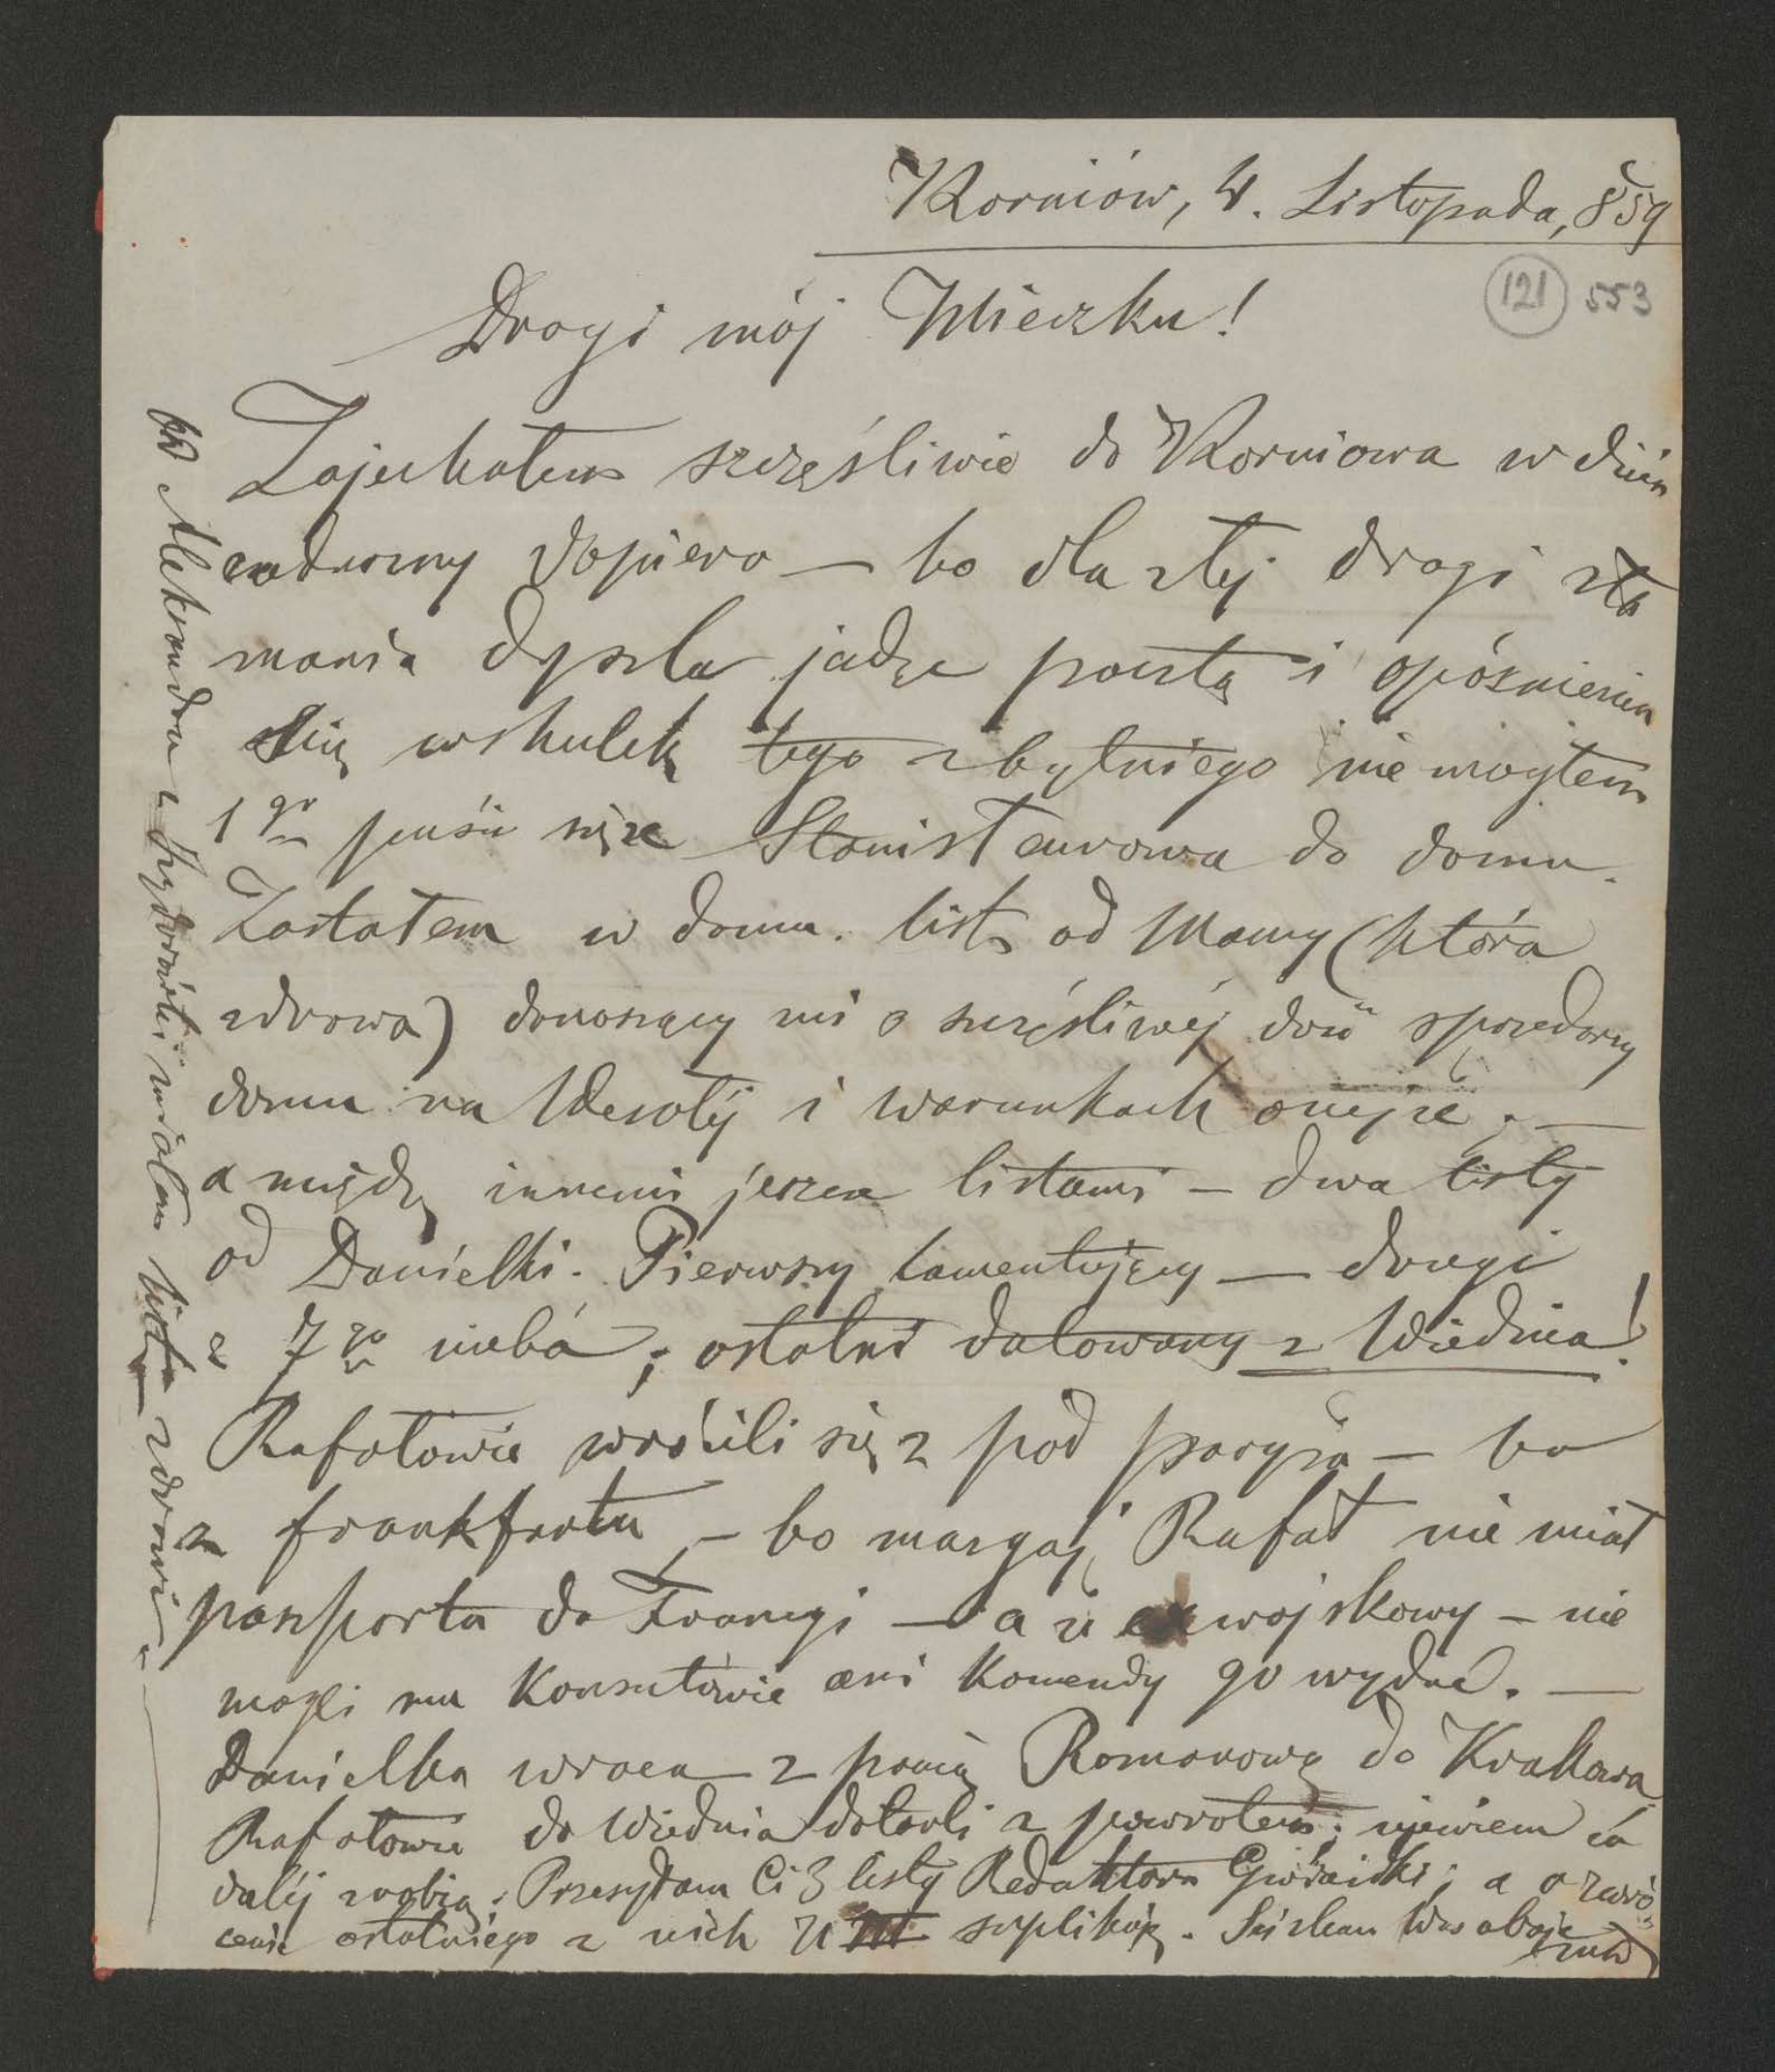 Korniów, 4. Listopada, 859
121 553
Drogi mój Mieczku!
Zajechałem szczęśliwie do Korniowa w dzień
zaduszny dopiero — bo dla złej drogi zła
mania dyszla jadąc pocztą i opóźnienia
się wskutek tego zbytniego nie mogłem
1go puścić się ze Stanisławowa do domu.
Zastałem w domu list od Mamy (która
zdrowa) donoszący mi o szczęśliwéj dość sprzedaży
domu na Wesołéj i warunkach onejże; —
a między innemi jeszcze listami — dwa listy
od Danielki. Pierwszy lamentujący — drugi
z 7go nieba; ostatni datowany z Wiednia!
Rafałowie wrócili się z pod Paryża — bo
z Frankfurtu, — bo Rafał nie miał
paszportu do Francyi — a że wojskowy — nie
mogli mu Konsulowie ani Komendy go wydać. —
Danielka wraca z panią Romanową do Krakowa
Rafałowie do Wiednia dotarli z powrotem; niewiem co
daléj zrobią. Przesyłam Ci 3 listy Redaktora; a o zwró-
cenie ostatniego z nich suplikuję. Ściskam Was oboje
Od Aleksandra z listy zdrowi.